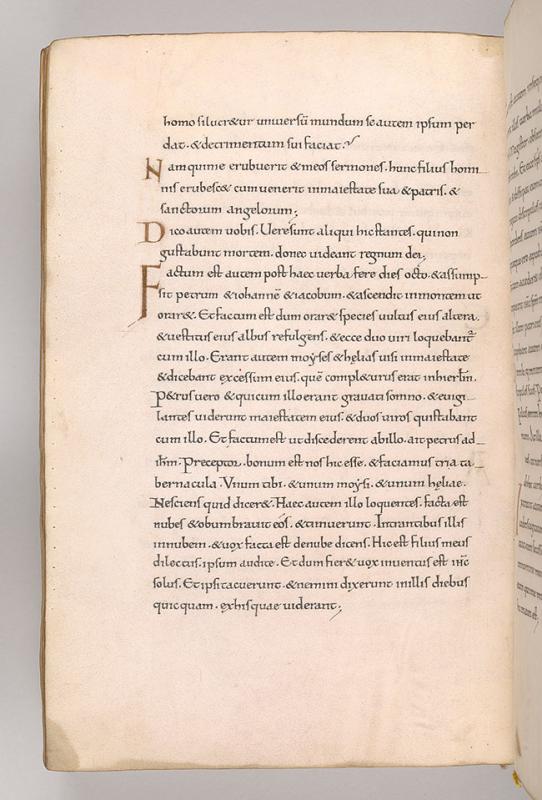 homo si lucr&ur universū mundum se autem ipsum per
dat. & detrimentum sui faciat.
Nam qui me erubuerit & meos sermones. hunc filius homi
nis erubesc& cum venerit in maiestate sua & patris. &
sanctorum angelorum;
Dico autem vobis. Vere sunt aliqui hic stantes. qui non
gustabunt mortem. donec videant regnum dei;
Factum est autem post haec verba fere dies octo. & assump
sit petrum & iohannē & iacobum. & ascendit in montem ut
orar&. Et factum est dum orar& species vultus eius altera.
& vestitus eius albus refulgens. & ecce duo viri loquebant̄
cum illo. Erant autem moyses & helias visi in maiestate
& dicebant excessum eius. quē compl&urus erat in hierl̄m.
P&rus vero & qui cum illo erant gravati somno. & evigi
lantes viderunt maiestatem eius. & duos viros qui stabant
cum illo. Et factum est ut discederent ab illo. ait petrus ad
ih̄m. Preceptor. bonum est nos hic esse. & faciamus tria ta
bernacula. Vnum tibi. & unum moysi. & unum heliae.
Nesciens quid dicer&. Haec autem illo loquentes. facta est
nubes & obumbravit eōs. & timuerunt. Intrantibus illis
in nubem. & vox facta est de nube dicens. Hic est filius meus
dilectus. ipsum audite. Et dum fier& vox inventus est ih̄c
solus. Et ipsi tacuerunt. & nemini dixerunt in illis diebus
quicquam. ex his quae viderant;